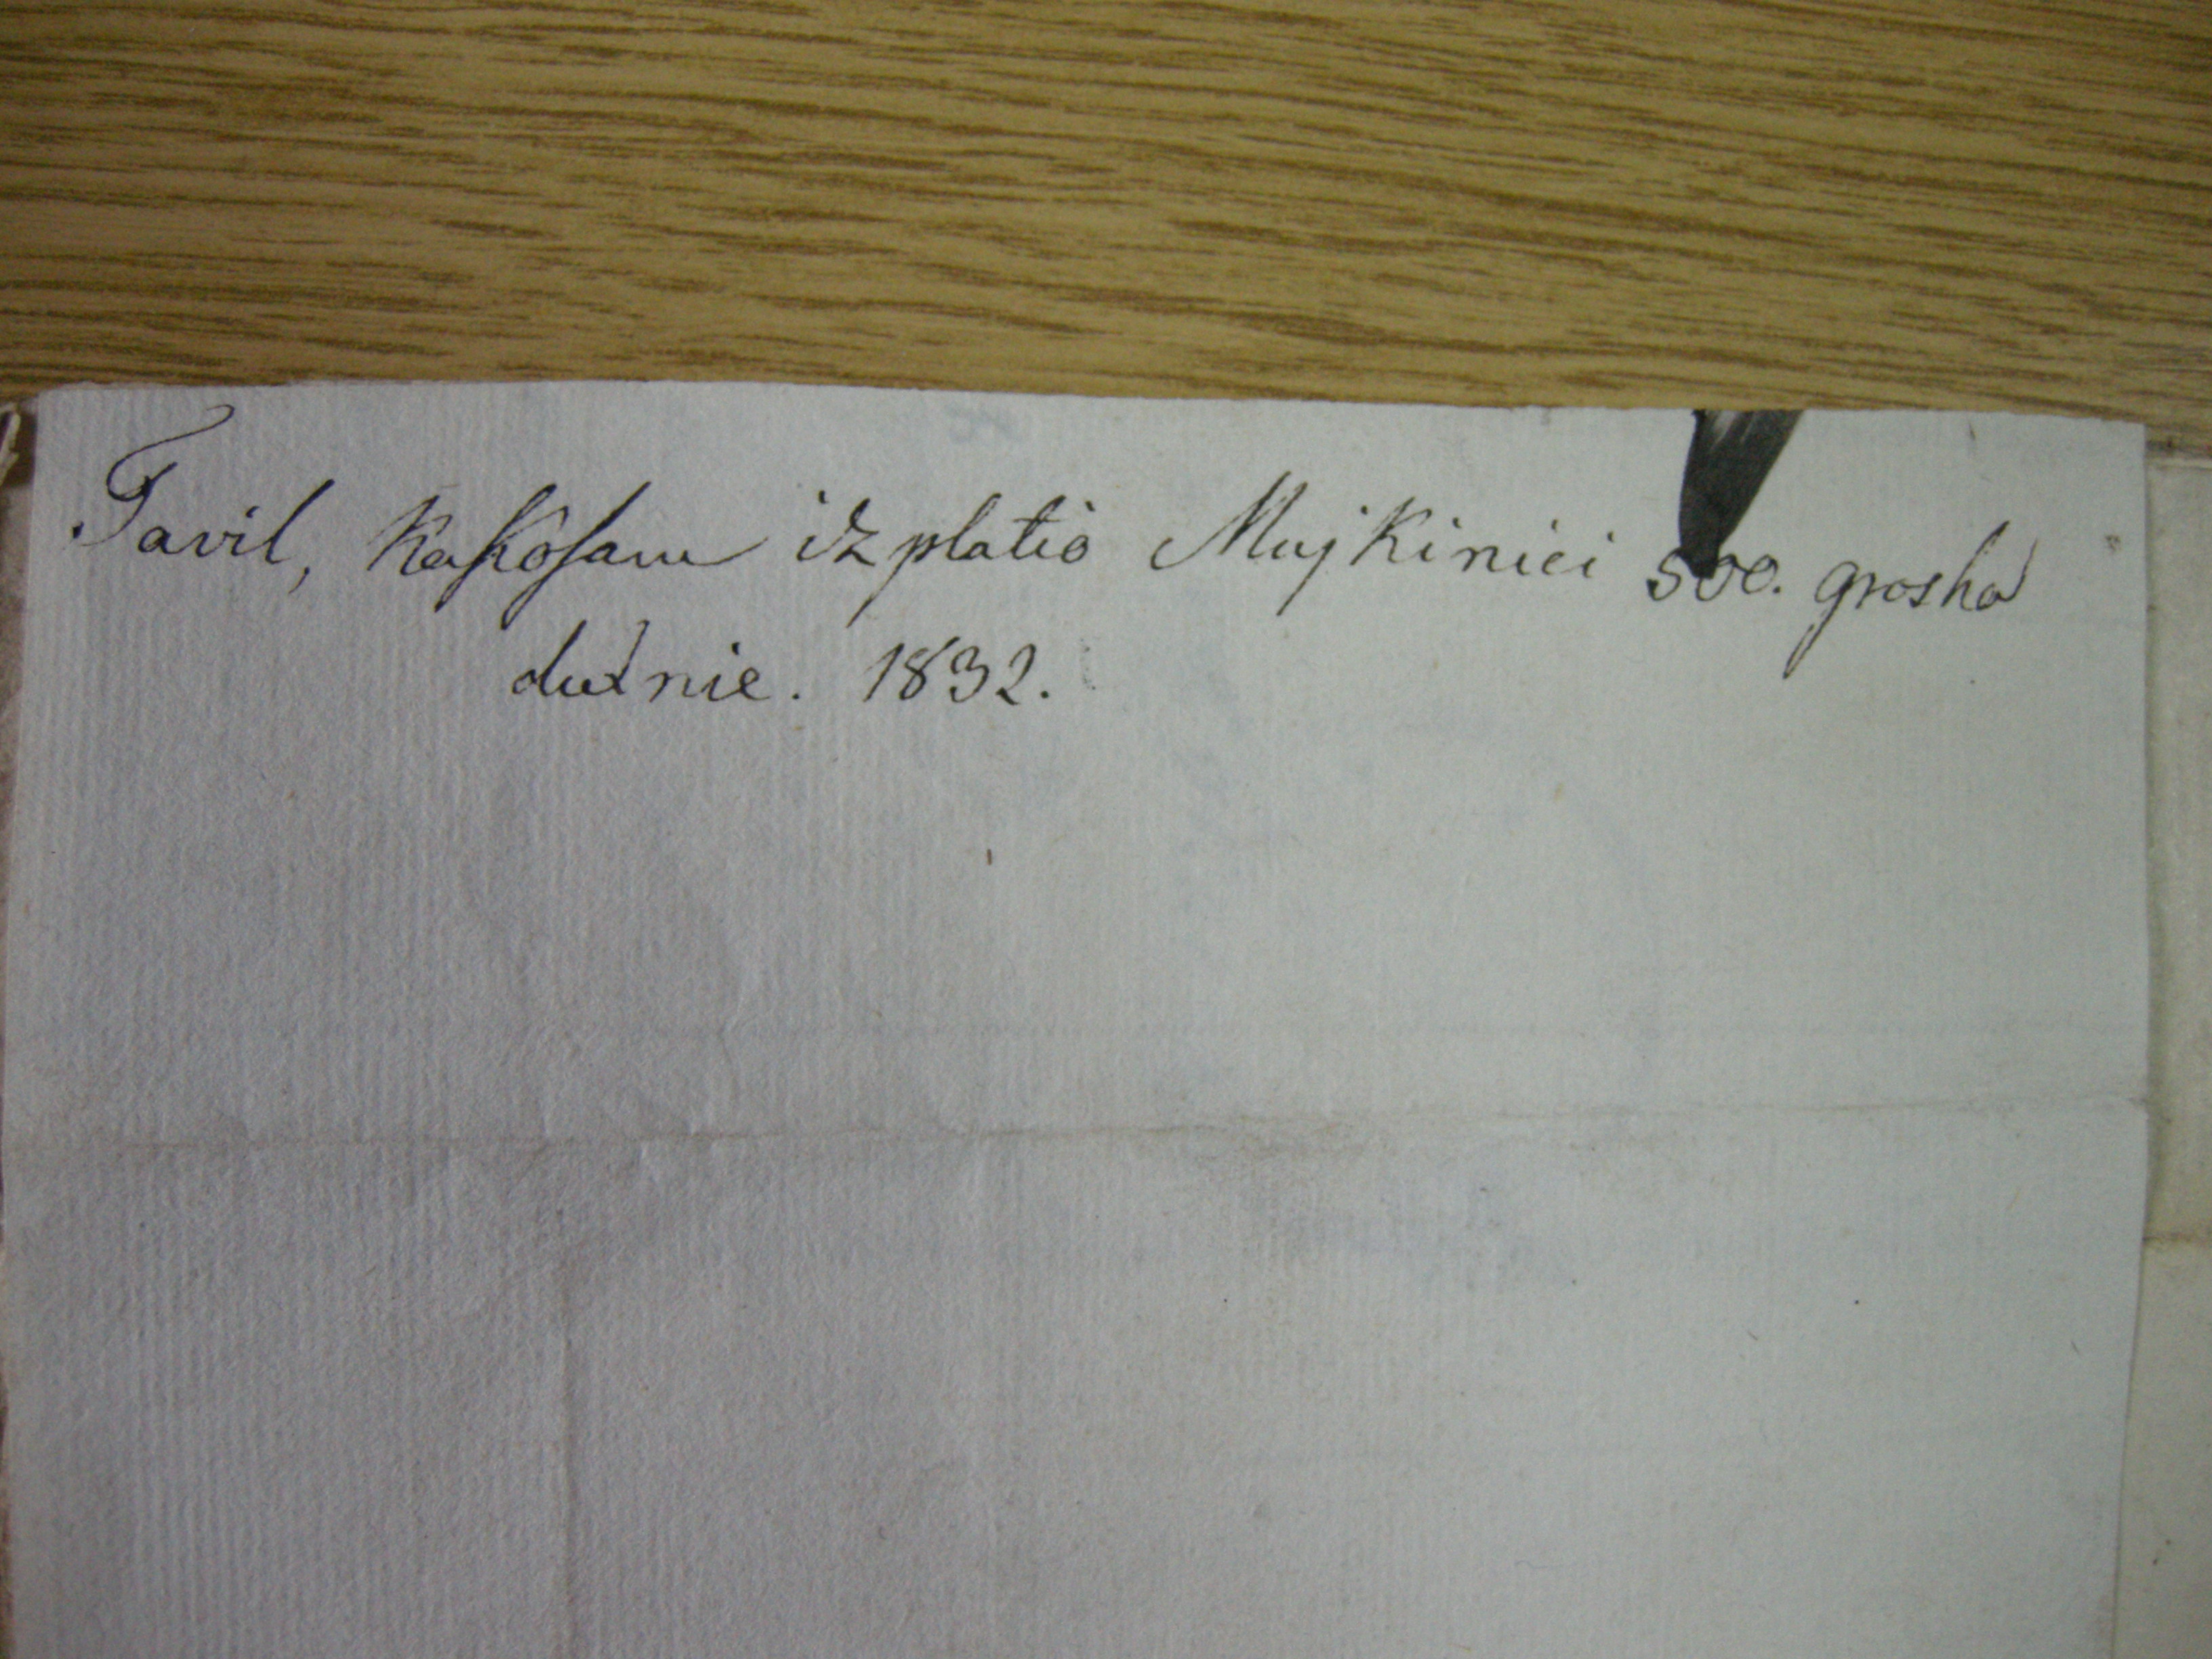 Tavil, kakosam izplatio Mujkinici 500. grosha
dužnie. 1832.